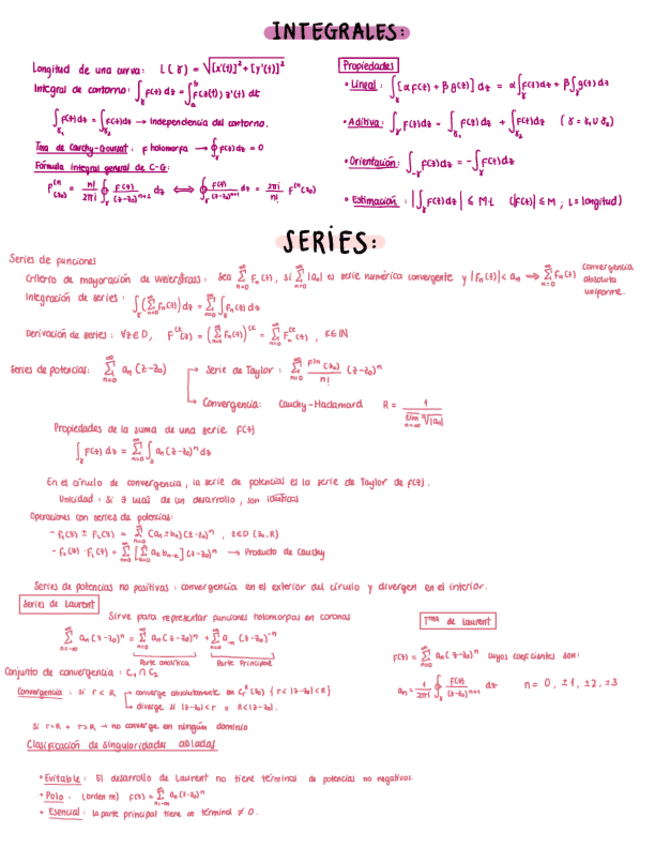 INTEGRALES:
Longitud de una curva: L(γ) = √[x'(t)]² + [y'(t)]²
Integral de contorno: ∫_γ F(z) dz = ∫_a^b F(z(t)) z'(t) dt
∫_γ₁ F(z) dz = ∫_γ₂ F(z) dz → Independencia del contorno.
Tma de Cauchy-Goursat: F holomorfa → ∮_γ F(z) dz = 0
Fórmula integral general de C-G:
F^(n)(z₀) = n!/2πi ∮_γ F(z)/(z-z₀)^(n+1) dz ⟺ ∮_γ F(z)/(z-z₀)^(n+1) dz = 2πi/n! F^(n)(z₀)
Propiedades
• Lineal: ∫_γ [αF(z) + βg(z)] dz = α∫_γ F(z) dz + β∫_γ g(z) dz
• Aditiva: ∫_γ F(z) dz = ∫_γ₁ F(z) dz + ∫_γ₂ F(z) dz (γ = γ₁ ∪ γ₂)
• Orientación: ∫_-γ F(z) dz = -∫_γ F(z) dz
• Estimación: |∫_γ F(z) dz| ≤ M·L (|F(z)| ≤ M ; L = longitud)
SERIES:
Series de funciones
Criterio de mayoración de Weierstrass: Sea Σ_{n=0}^∞ F_n(z), si Σ_{n=0}^∞ |a_n| es serie numérica convergente y |F_n(z)| < a_n ⟹ Σ_{n=0}^∞ F_n(z) convergencia absoluta uniforme.
Integración de series: ∫_γ (Σ_{n=0}^∞ F_n(z)) dz = Σ_{n=0}^∞ ∫_γ F_n(z) dz
Derivación de series: ∀z∈D, F^(k)(z) = (Σ_{n=0}^∞ F_n(z))^(k) = Σ_{n=0}^∞ F_n^(k)(z), k∈ℕ
Series de potencias: Σ_{n=0}^∞ a_n (z-z₀)
Serie de Taylor: Σ_{n=0}^∞ F^(n)(z₀)/n! (z-z₀)^n
Convergencia: Cauchy-Hadamard R = 1/(lim_{n→∞} ⁿ√|a_n|)
Propiedades de la suma de una serie F(z)
∫_γ F(z) dz = Σ_{n=0}^∞ ∫_γ a_n (z-z₀)^n dz
En el círculo de convergencia, la serie de potencias es la serie de Taylor de F(z).
Unicidad: Si ∃ más de un desarrollo, son idénticos
Operaciones con series de potencias:
- F₁(z) ± F₂(z) = Σ_{n=0}^∞ (a_n ± b_n)(z-z₀)^n, z∈D(z₀,R)
- F₁(z) · F₂(z) = Σ_{n=0}^∞ [Σ_{k=0}^n a_k b_{n-k}] (z-z₀)^n → Producto de Cauchy
Series de potencias no positivas: convergencia en el exterior del círculo y divergen en el interior.
Series de Laurent
Sirve para representar funciones holomorfas en coronas
Σ_{n=-∞}^∞ a_n (z-z₀)^n = Σ_{n=0}^∞ a_n (z-z₀)^n + Σ_{n=0}^∞ a_-n (z-z₀)^-n
Parte analítica Parte Principal
Conjunto de convergencia: C₁ ∩ C₂
Convergencia: si r < R
converge absolutamente en C_r^R(z₀) {r < |z-z₀| < R}
diverge si |z-z₀| < r o R < |z-z₀|.
Si r=R o r>R → no converge en ningún dominio
Tma de Laurent
F(z) = Σ_{n=0}^∞ a_n (z-z₀)^n cuyos coeficientes son:
a_n = 1/2πi ∮_γ F(z)/(z-z₀)^(n+1) dz n = 0, ±1, ±2, ±3
Clasificación de singularidades aisladas
• Evitable: El desarrollo de Laurent no tiene términos de potencias no negativas.
• Polo - (orden m) F(z) = Σ_{n=-m}^∞ a_n (z-z₀)^n
• Esencial: la parte principal tiene ∞ términos ≠ 0.